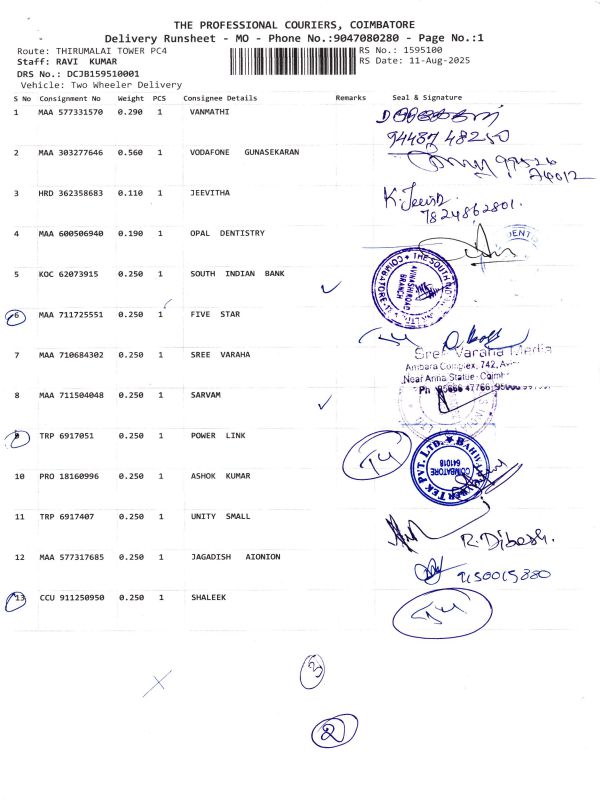 THE PROFESSIONAL COURIERS, COIMBATORE
- Delivery Runsheet - MO - Phone No.:9047080280 - Page No.:1
Route: THIRUMALAI TOWER PC4 RS No.: 1595100
Staff: RAVI KUMAR RS Date: 11-Aug-2025
DRS No.: DCJB159510001
Vehicle: Two Wheeler Delivery
S No Consignment No Weight PCS Consignee Details Remarks Seal & Signature
1 MAA 577331570 0.290 1 VANMATHI
94487 48250
2 MAA 303277646 0.560 1 VODAFONE GUNASEKARAN
3 HRD 362358683 0.110 1 JEEVITHA K. Jeevi
7824862801.
4 MAA 600506940 0.190 1 OPAL DENTISTRY
5 KOC 62073915 0.250 1 SOUTH INDIAN BANK ✓ THE SOUTH COIMBATORE AVINASHI ROAD BRANCH
6 MAA 711725551 0.250 1 FIVE STAR
7 MAA 710684302 0.250 1 SREE VARAHA Sree Varaha Media
Ambara Complex, 742,
Near Anna Statue - Coimb
Ph
8 MAA 711504048 0.250 1 SARVAM ✓
9 TRP 6917051 0.250 1 POWER LINK
10 PRO 18160996 0.250 1 ASHOK KUMAR PVT. LTD. COIMBATORE 641018
11 TRP 6917407 0.250 1 UNITY SMALL R. Dibesh.
12 MAA 577317685 0.250 1 JAGADISH AIONION
13 CCU 911250950 0.250 1 SHALEEK
3
2